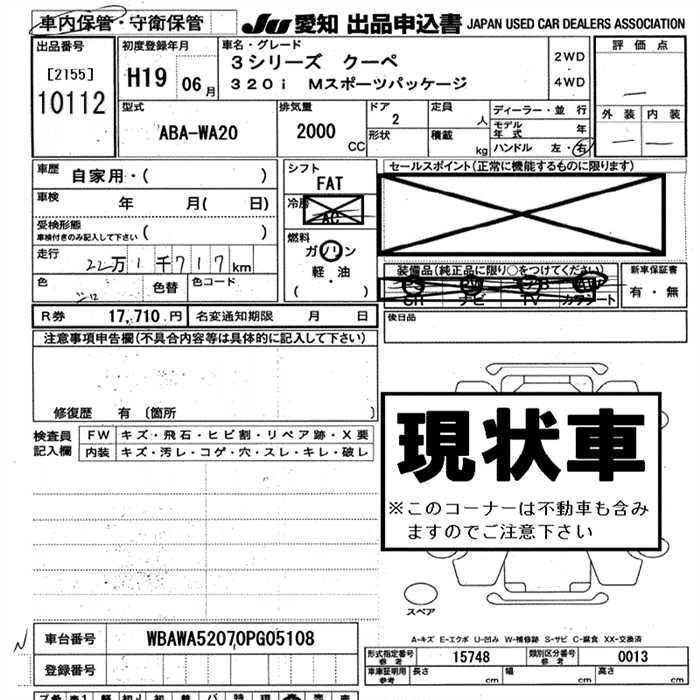 車内保管・守衛保管 JU 愛知 出品申込書 JAPAN USED CAR DEALERS ASSOCIATION
出品番号 [2155] 10112
初度登録年月 H19 06月
車名・グレード 3シリーズ クーペ
320i Mスポーツパッケージ
2WD・4WD
評価点 —
外装 — 内装 —
型式 ABA-WA20
排気量 2000 CC
ドア 2 形状
定員 人 積載 kg
ディーラー・並行
モデル年式 年
ハンドル 左・右
車歴 自家用・( )
車検 年 月( 日)
受検形態 車検付きのみ記入して下さい ( )
走行 22万1千717km
色 色替 色コード
シフト FAT
冷房 AC
燃料 ガソリン 軽・油 ( )
セールスポイント(正常に機能するものに限ります)
装備品(純正品に限り○をつけてください)
ナビ TV カワシート
新車保証書 有・無
R券 17,710.円 名変通知期限 月 日
後日品
注意事項申告欄(不具合内容等は具体的に記入して下さい)
修復歴 有 〔箇所 〕
検査員記入欄
FW キズ・飛石・ヒビ割・リペア跡・X要
内装 キズ・汚レ・コゲ・穴・スレ・キレ・破レ
現状車
※このコーナーは不動車も含み
ますのでご注意下さい
スペア
A-キズ E-エクボ U-凹み W-補修跡 S-サビ C-腐食 XX-交換済
車台番号 WBAWA52070PG05108
登録番号
形式指定番号 参考 15748 類別区分番号 参考 0013
車庫証明用 参考 長さ cm 幅 cm 高さ cm